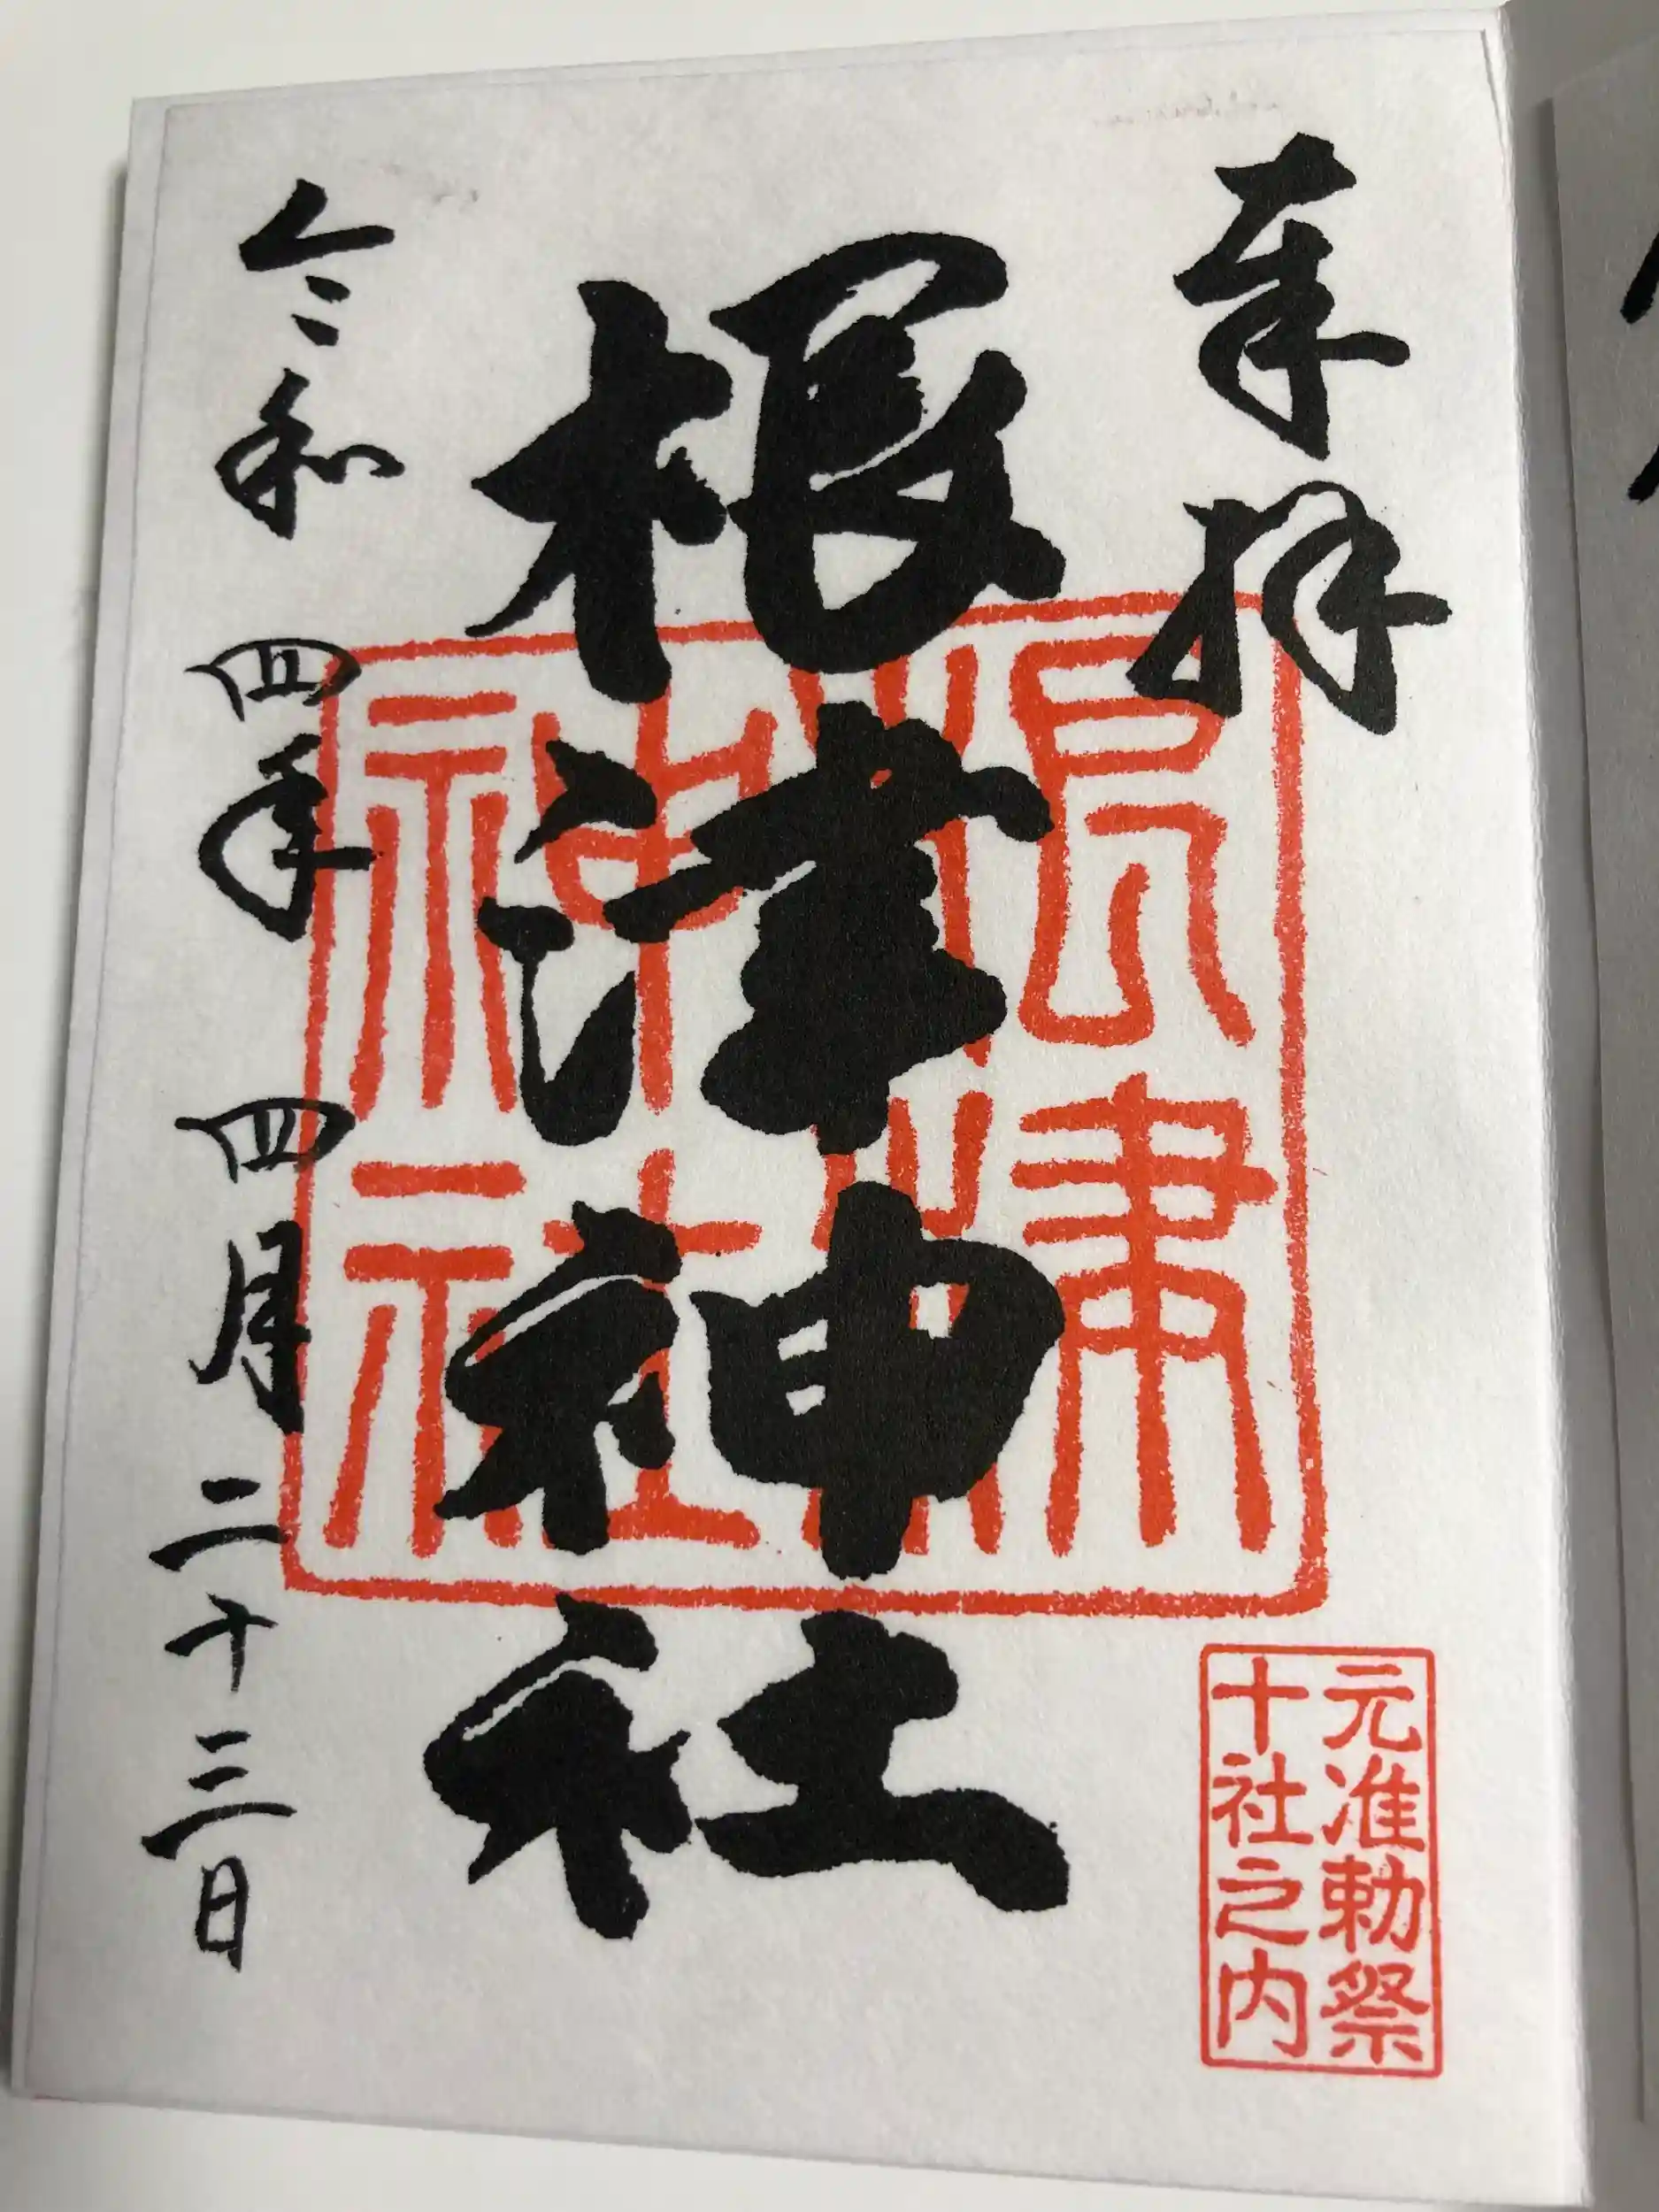 奉拝
元准勅祭
十社之内
根津神社
根津
神社
令和四年四月二十三日